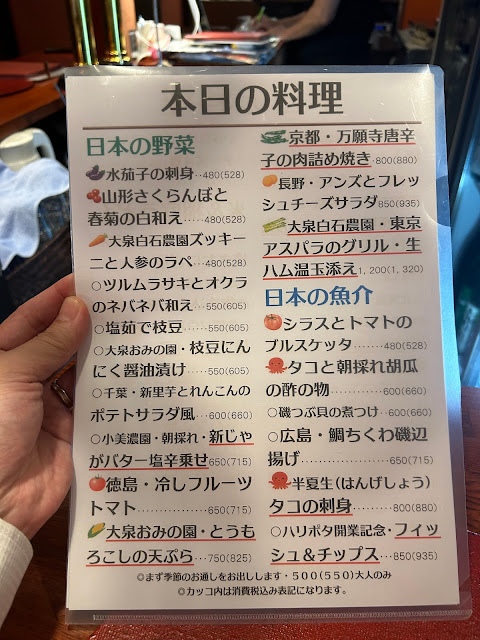 本日の料理
日本の野菜
水茄子の刺身‥480(528)
山形さくらんぼと
春菊の白和え‥‥480(528)
大泉白石農園ズッキー
ニと人参のラペ‥‥480(528)
○ツルムラサキとオクラ
のネバネバ和え‥550(605)
○塩茹で枝豆‥‥550(605)
○大泉おみの園・枝豆にん
にく醤油漬け‥‥550(605)
○千葉・新里芋とれんこんの
ポテトサラダ風‥‥600(660)
○小美濃園・朝採れ・新じゃ
がバター塩辛乗せ650(715)
徳島・冷しフルーツ
トマト‥‥‥‥650(715)
大泉おみの園・とうも
ろこしの天ぷら‥‥750(825)
京都・万願寺唐辛
子の肉詰め焼き‥800(880)
長野・アンズとフレッ
シュチーズサラダ850(935)
大泉白石農園・東京
アスパラのグリル・生
ハム温玉添え1,200(1,320)
日本の魚介
シラスとトマトの
ブルスケッタ‥‥‥480(528)
タコと朝採れ胡瓜
の酢の物‥‥‥‥600(660)
○磯つぶ貝の煮つけ‥‥600(660)
○広島・鯛ちくわ磯辺
揚げ‥‥‥‥‥650(715)
半夏生(はんげしょう)
タコの刺身‥‥‥800(880)
○ハリポタ開業記念・フィッ
シュ&チップス‥‥850(935)
○まず季節のお通しをお出しします・500(550)大人のみ
○カッコ内は消費税込み表記になります。